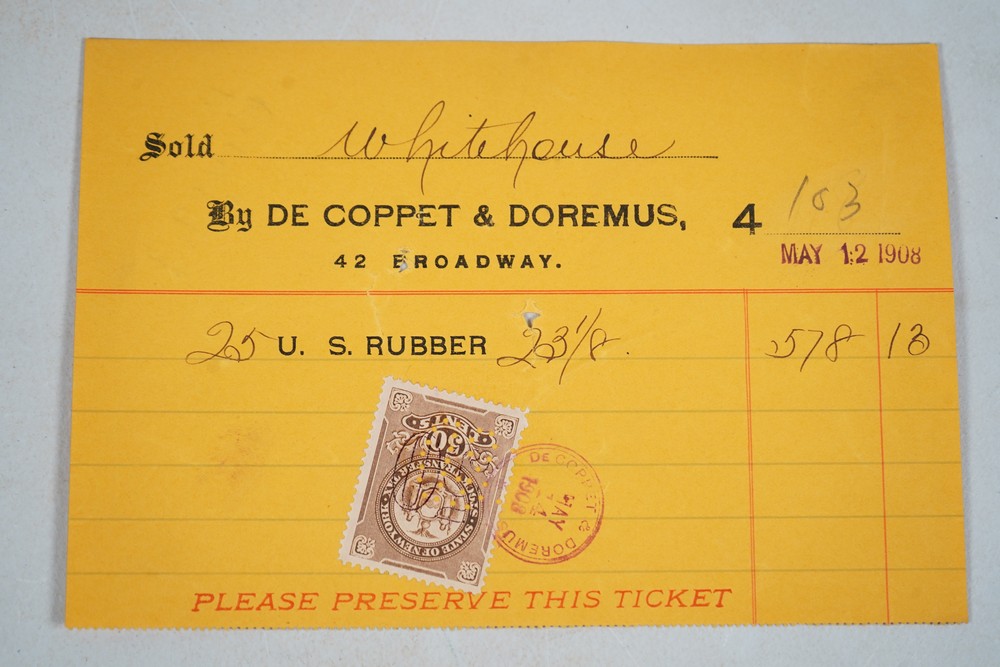 Sold Whitehouse
By DE COPPET & DOREMUS,
4 103
42 BROADWAY.
MAY 12 1908
25 U. S. RUBBER 23 1/8. 578 13
50
CENTS
STOCK TRANSFER TAX
STATE OF NEW YORK
DE COPPET & DOREMUS
MAY
1908
PLEASE PRESERVE THIS TICKET